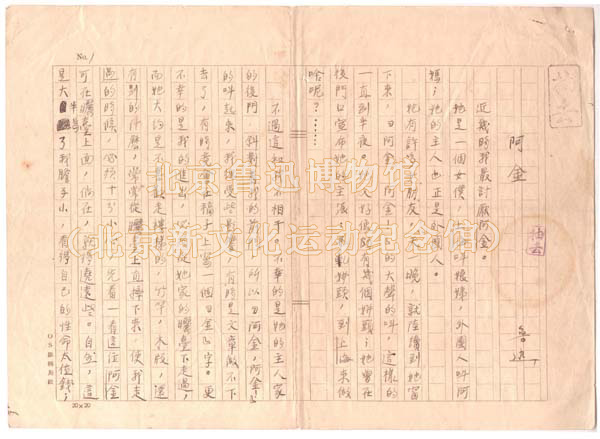 No. 1
阿金
魯迅
近幾時我最討厭阿金。
她是一個女僕，上海叫娘姨，外國人叫阿
媽，她的主人也正是外國人。
她有許多女朋友，天一晚，就陸續到她窗
下來，「阿金，阿金！」的大聲的叫，這樣的
一直到半夜。她又好像頗有幾個姘頭；她曾在
後門口宣布她的主張：弗軋姘頭，到上海來做
啥呢？……
不過這和我不相干。不幸的是她的主人家
的後門，斜對着我的前門，所以「阿金，阿金！」
的叫起來，我總受些影響，有時是文章做不下
去了，有時竟會在稿子上寫一個「金」字。更
不幸的是我的進出，必須從她家的曬臺下走過，
而她大約是不喜歡走樓梯的，竹竿，木板，還
有別的什麼，常常從曬臺上直摔下來，使我走
過的時候，必須十分小心，先看一看這位阿金
可在曬臺上面，倘在，就得繞遠些。自然，這
是大半為了我膽子小，看得自己的性命太值錢；
20×20
北京鲁迅博物馆
（北京新文化运动纪念馆）